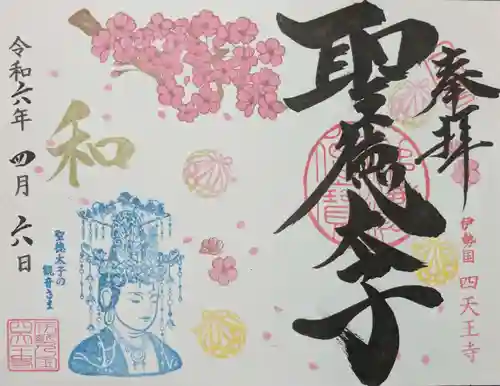 奉拝
伊勢国 四天王寺
聖徳太子
和
聖徳太子の
観音さま
令和六年 四月 六日